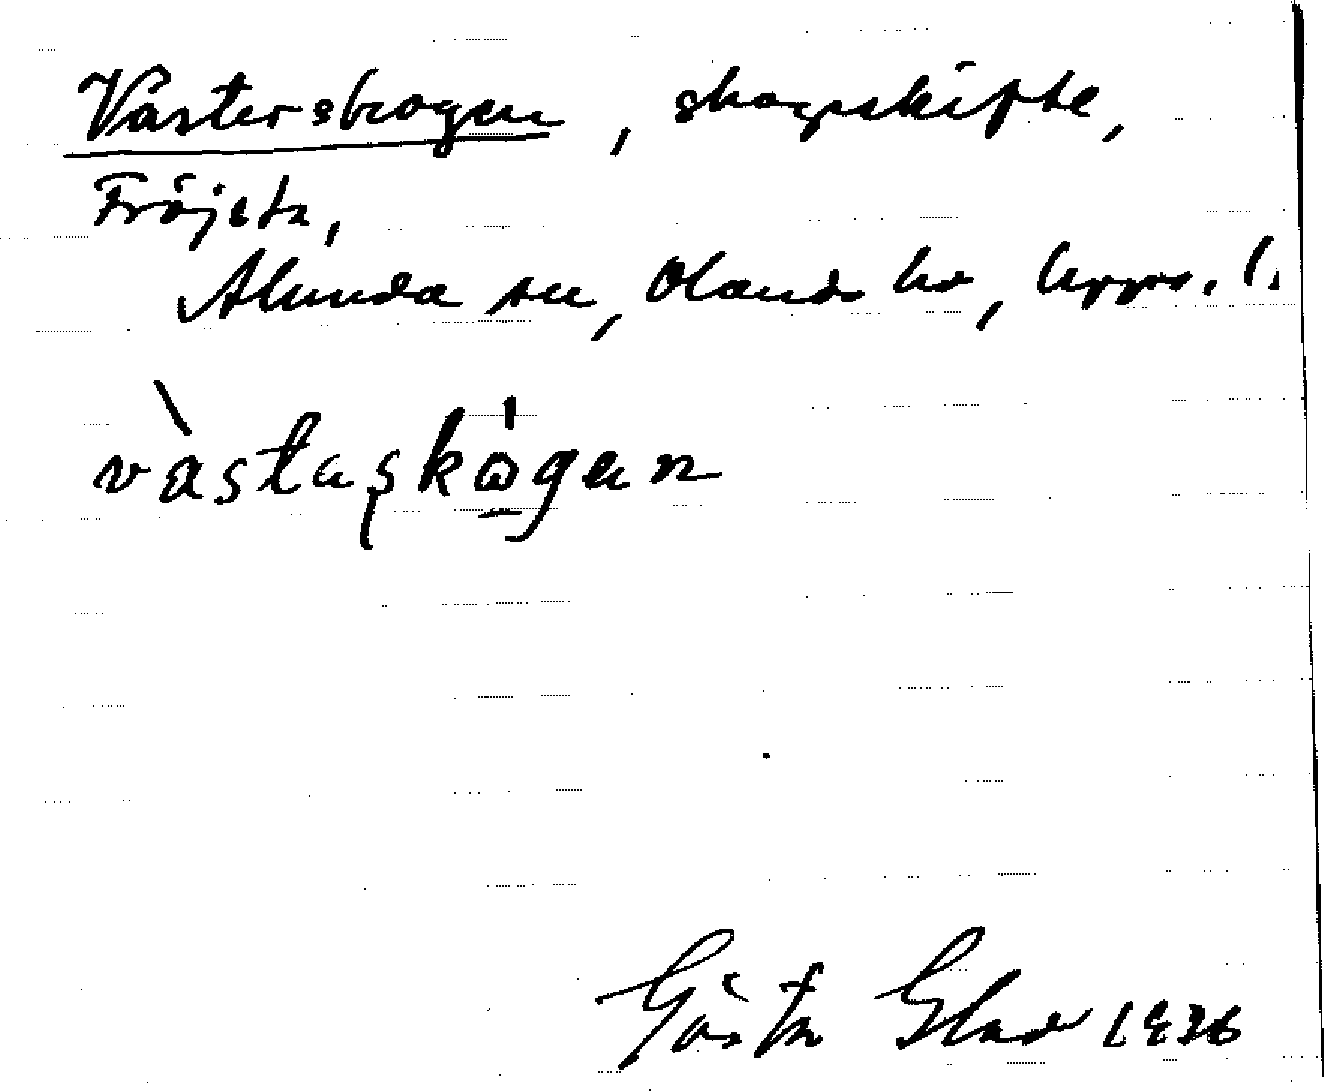 Västerskogen, skogsskifte,
Fröjsta,
Alunda sn, Olands hd, Upps. l.
västaskogen
Gösta Glad 1936